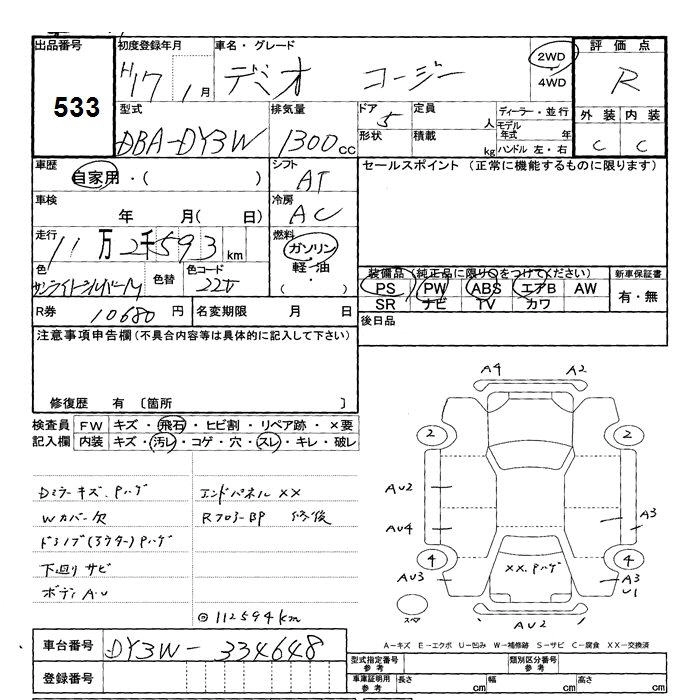 出品番号
533
初度登録年月
H17年 1月
車名・グレード
デミオ コージー
2WD
4WD
評価点
R
型式
DBA-DY3W
排気量
1300cc
ドア
5
形状
定員
人
積載
kg
ディーラー・並行
モデル年式 年
ハンドル 左・右
外装 内装
C C
車歴
自家用・( )
シフト
AT
セールスポイント (正常に機能するものに限ります)
車検
年 月( 日)
冷房
AC
走行
11万2千593km
燃料
ガソリン
軽・油
( ・ )
色
サンライトシルバーM
色替
色コード
22V
装備品 (純正品に限り○をつけてください)
PS PW ABS エアB AW
SR ナビ TV カワ
新車保証書
有・無
R券 10680円
名変期限 月 日
後日品
注意事項申告欄(不具合内容等は具体的に記入して下さい)
修復歴 有 〔箇所 〕
検査員記入欄
FW キズ・飛石・ヒビ割・リペア跡・×要
内装 キズ・汚レ・コゲ・穴・スレ・キレ・破レ
Dミラーキズ、Pハゲ
Wカバー欠
ドアノブ(アウター)Pハゲ
下廻りサビ
ボディA・U
エンドパネルXX
Rフロアー BP 修後
◎112594km
A4 A2
2 2
AU2
AU4
A3
4 4
AU3
XX、Pハゲ
A3
U1
スペア
AU2
A－キズ E－エクボ U－凹み W－補修跡 S－サビ C－腐食 XX－交換済
車台番号
DY3W-334648
登録番号
型式指定番号
参考
類別区分番号
参考
車庫証明用
参考
長さ cm 幅 cm 高さ cm